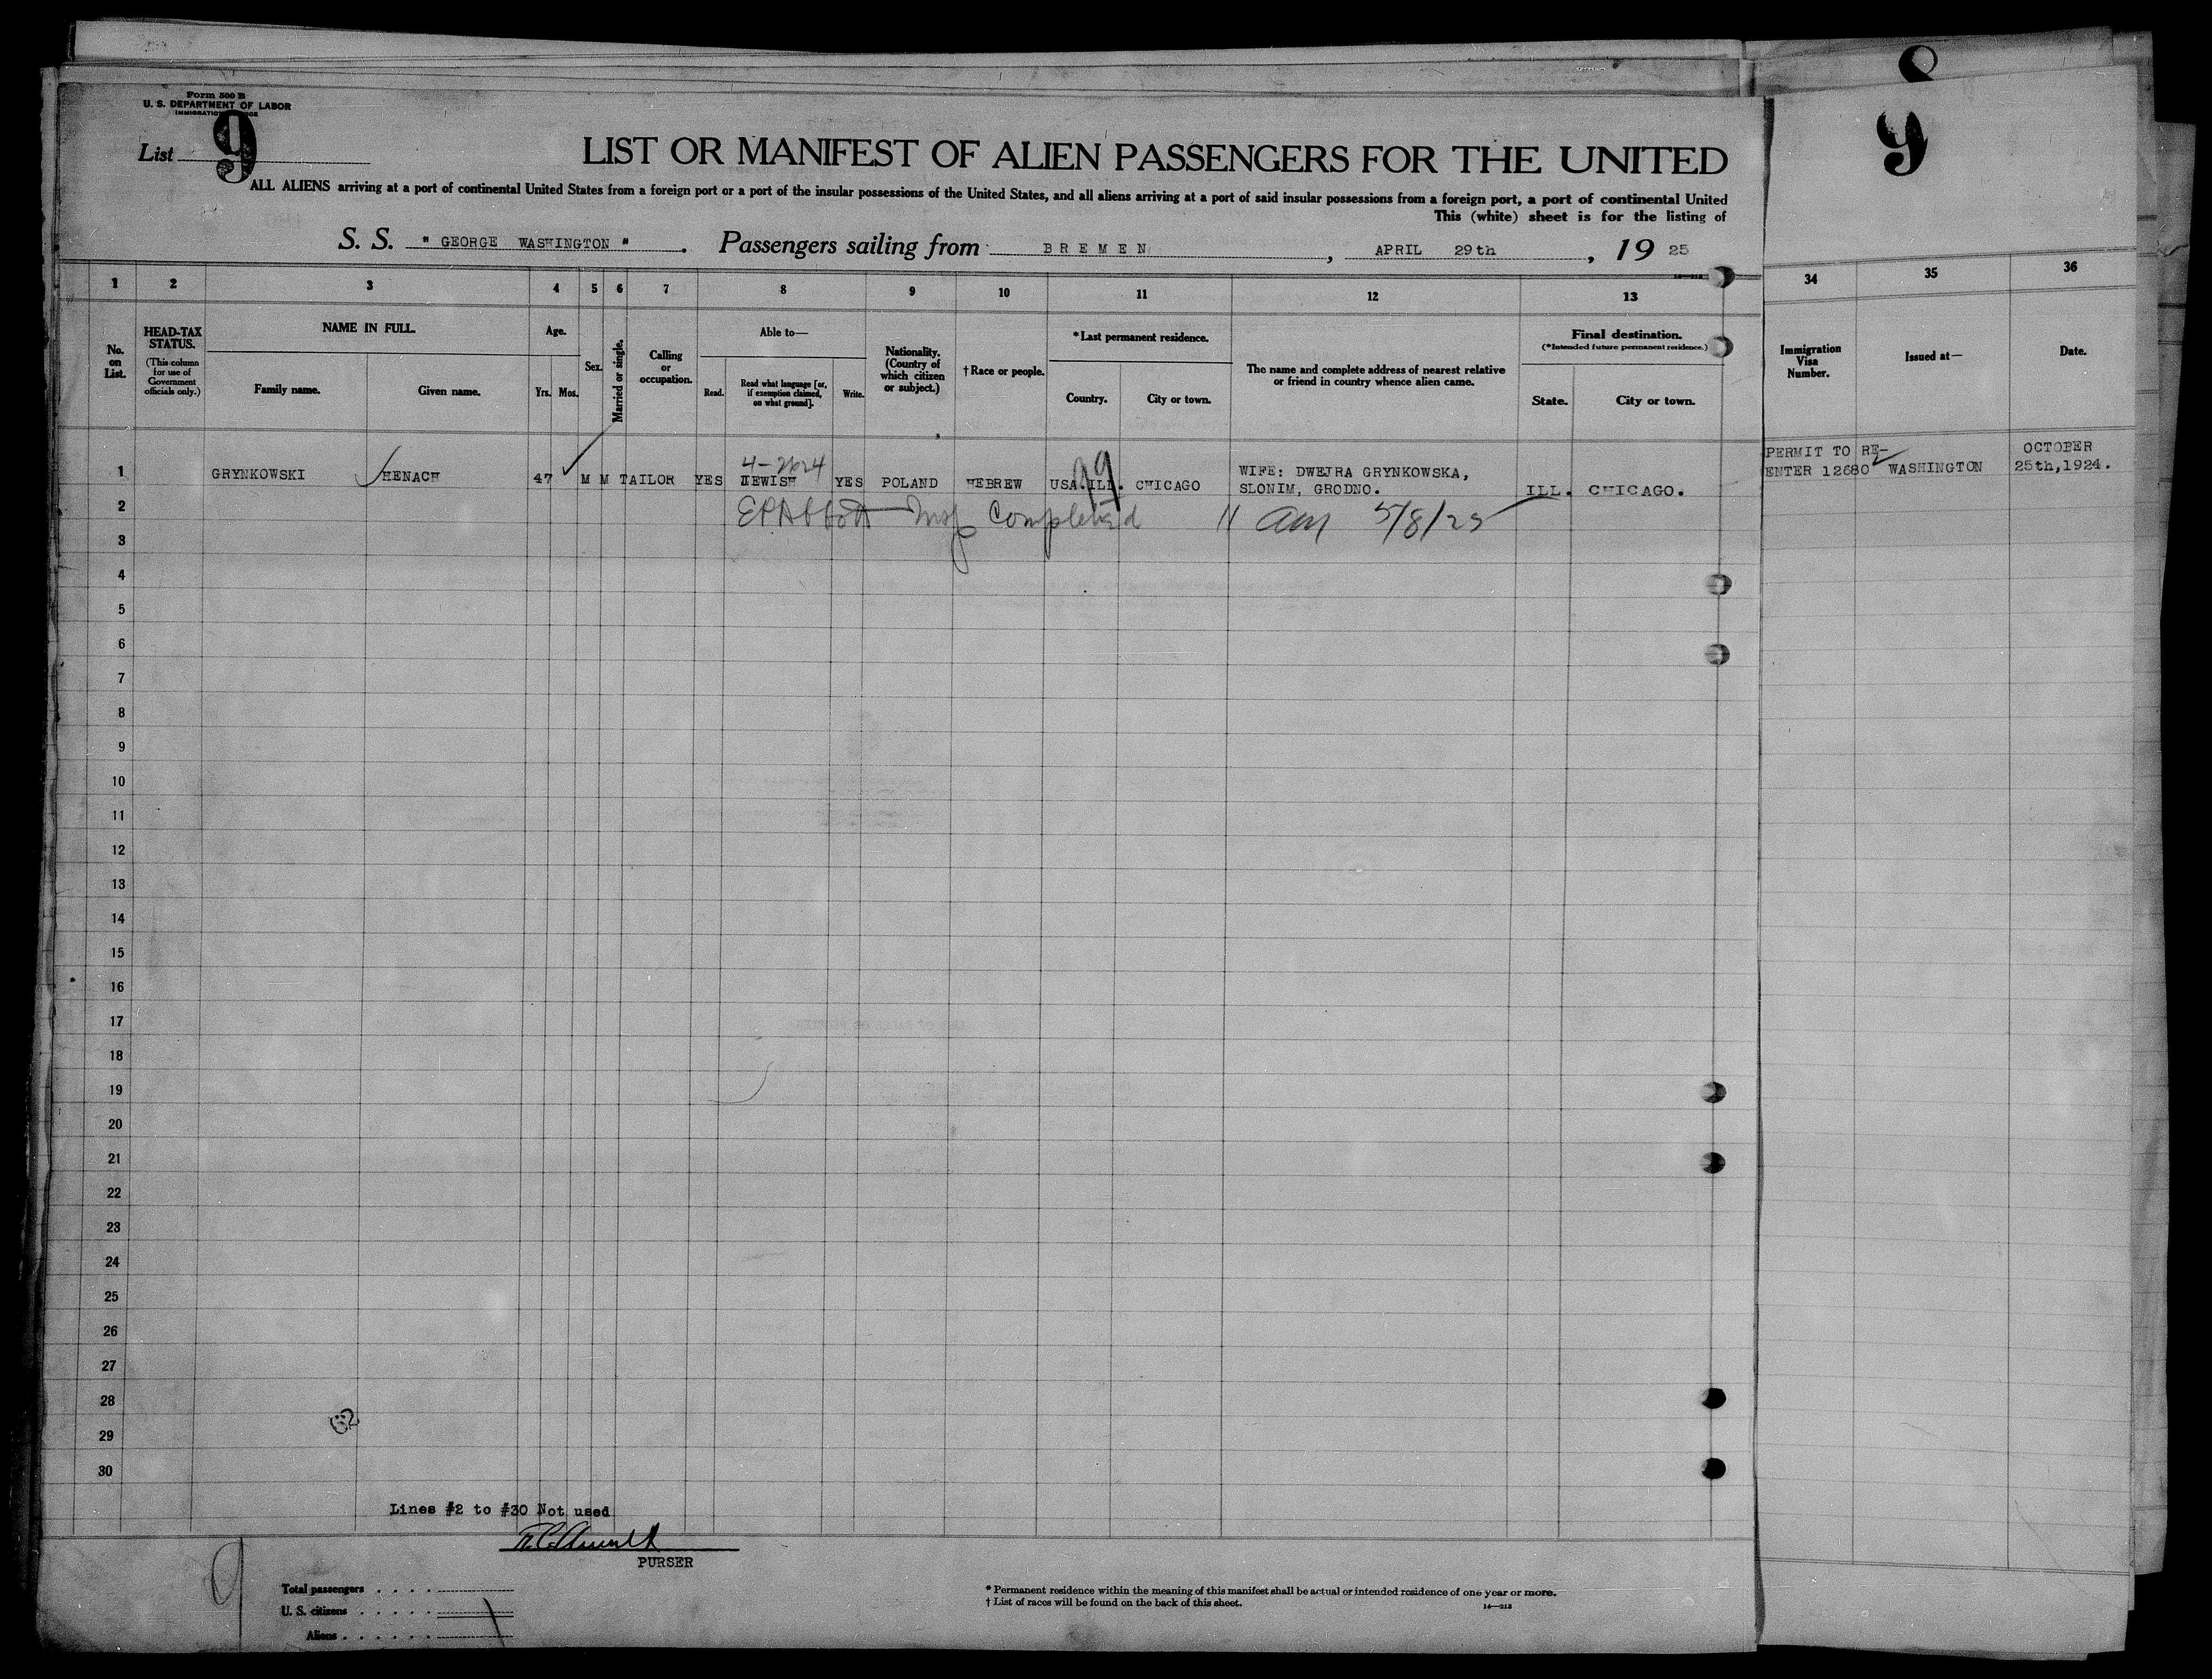 Form 500 B
U. S. DEPARTMENT OF LABOR
List 9
9
LIST OR MANIFEST OF ALIEN PASSENGERS FOR THE UNITED
ALL ALIENS arriving at a port of continental United States from a foreign port or a port of the insular possessions of the United States, and all aliens arriving at a port of said insular possessions from a foreign port, a port of continental United
This (white) sheet is for the listing of
S. S. " GEORGE WASHINGTON " . Passengers sailing from BREMEN , APRIL 29th , 19 25
1 2 3 4 5 6 7 8 9 10 11 12 13 34 35 36
No. on List.
HEAD-TAX STATUS.
(This column for use of Government officials only.)
NAME IN FULL.
Family name. Given name.
Age.
Yrs. Mos.
Sex.
Married or single.
Calling or occupation.
Able to—
Read. Read what language [or, if exemption claimed, on what ground]. Write.
Nationality. (Country of which citizen or subject.)
†Race or people.
*Last permanent residence.
Country. City or town.
The name and complete address of nearest relative or friend in country whence alien came.
Final destination.
(*Intended future permanent residence.)
State. City or town.
Immigration Visa Number.
Issued at—
Date.
4-2624
1 GRYNKOWSKI HENACH 47 M M TAILOR YES JEWISH YES POLAND HEBREW USA.ILL. CHICAGO WIFE: DWEJRA GRYNKOWSKA, SLONIM, GRODNO. ILL. CHICAGO. PERMIT TO RE-ENTER 12680 WASHINGTON OCTOBER 25th,1924.
2 EPAbbott Insp Completed 11 am 5/8/25
3
4
5
6
7
8
9
10
11
12
13
14
15
16
17
18
19
20
21
22
23
24
25
26
27
28
29
30
Lines #2 to #30 Not used
PURSER
9
Total passengers . . . .
U. S. citizens . . . . .
Aliens . . . . . .
* Permanent residence within the meaning of this manifest shall be actual or intended residence of one year or more.
† List of races will be found on the back of this sheet.
14—213